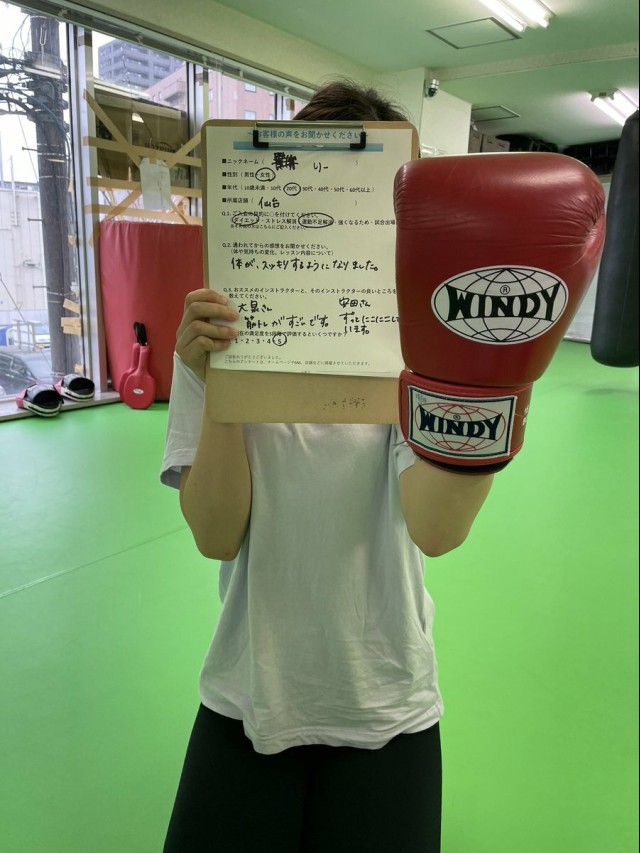 お客様の声をお聞かせください
■ニックネーム（ りー ）
■性別（男性・女性）
■年代（10歳未満・10代・20代・30代・40代・50代・60代以上）
■所属店舗（ 仙台 ）
Q.1. ご入会の目的に〇を付けてください。
ダイエット・ストレス解消・運動不足解消・強くなるため・試合出場
Q.2. 通われてからの感想をお聞かせください。
（体や気持ちの変化、レッスン内容について）
体が、スッキリするようになりました。
Q.3. おススメのインストラクターと、そのインストラクターの良いところを
教えてください。
大泉さん 安田さん
筋トレがすごいです。 ずっとにこにこして
います。
現在の満足度を5段階で評価するといくつですか？
1・2・3・4・5
ご協力ありがとうございました。
WINDY
WINDY